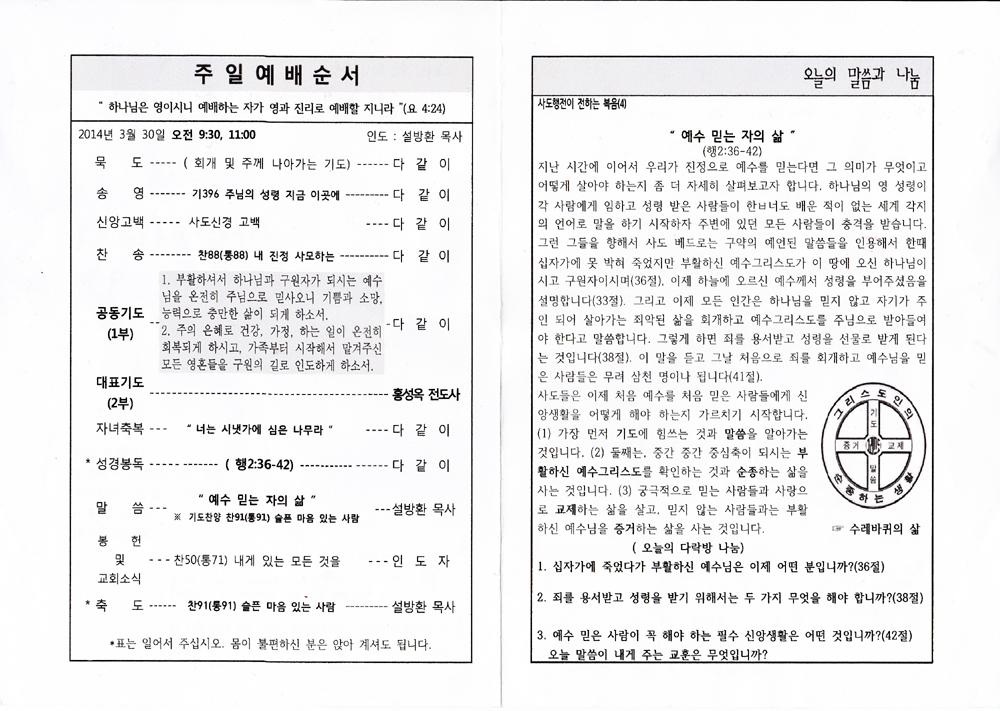 주 일 예 배 순 서
“ 하나님은 영이시니 예배하는 자가 영과 진리로 예배할 지니라 ”(요 4:24)
2014년 3월 30일 오전 9:30, 11:00 인도 : 설방환 목사
묵 도 ----- ( 회개 및 주께 나아가는 기도) ------ 다 같 이
송 영 ------- 기396 주님의 성령 지금 이곳에 ---------- 다 같 이
신앙고백 ----- 사도신경 고백 ---- 다 같 이
찬 송 -------- 찬88(통88) 내 진정 사모하는 ---------- 다 같 이
공동기도
(1부)
1. 부활하셔서 하나님과 구원자가 되시는 예수
님을 온전히 주님으로 믿사오니 기쁨과 소망,
능력으로 충만한 삶이 되게 하소서.
2. 주의 은혜로 건강, 가정, 하는 일이 온전히
회복되게 하시고, 가족부터 시작해서 맡겨주신
모든 영혼들을 구원의 길로 인도하게 하소서.
- 다 같 이
대표기도
(2부)
홍성옥 전도사
자녀축복 -- “ 너는 시냇가에 심은 나무라 ” ---- 다 같 이
* 성경봉독 ----- ------- ( 행2:36-42) ------------ 다 같 이
말 씀 --- “ 예수 믿는 자의 삶 ” ---설방환 목사
※ 기도찬양 찬91(통91) 슬픈 마음 있는 사람
봉 헌
및
교회소식
--- 찬50(통71) 내게 있는 모든 것을 --- 인 도 자
* 축 도 ------ 찬91(통91) 슬픈 마음 있는 사람 --------- 설방환 목사
*표는 일어서 주십시오. 몸이 불편하신 분은 앉아 계셔도 됩니다.
오늘의 말씀과 나눔
사도행전이 전하는 복음(4)
“ 예수 믿는 자의 삶 ”
(행2:36-42)
지난 시간에 이어서 우리가 진정으로 예수를 믿는다면 그 의미가 무엇이고
어떻게 살아야 하는지 좀 더 자세히 살펴보고자 합니다. 하나님의 영 성령이
각 사람에게 임하고 성령 받은 사람들이 한ㅂ너도 배운 적이 없는 세계 각지
의 언어로 말을 하기 시작하자 주변에 있던 모든 사람들이 충격을 받습니다.
그런 그들을 향해서 사도 베드로는 구약의 예언된 말씀들을 인용해서 한때
십자가에 못 박혀 죽었지만 부활하신 예수그리스도가 이 땅에 오신 하나님이
시고 구원자이시며(36절). 이제 하늘에 오르신 예수께서 성령을 부어주셨음을
설명합니다(33절). 그리고 이제 모든 인간은 하나님을 믿지 않고 자기가 주
인 되어 살아가는 죄악된 삶을 회개하고 예수그리스도를 주님으로 받아들여
야 한다고 말씀합니다. 그렇게 하면 죄를 용서받고 성령을 선물로 받게 된다
는 것입니다(38절). 이 말을 듣고 그날 처음으로 죄를 회개하고 예수님을 믿
은 사람들은 무려 삼천 명이나 됩니다(41절).
사도들은 이제 처음 예수를 처음 믿은 사람들에게 신
앙생활을 어떻게 해야 하는지 가르치기 시작합니다.
(1) 가장 먼저 기도에 힘쓰는 것과 말씀을 알아가는
것입니다. (2) 둘째는, 중간 중간 중심축이 되시는 부
활하신 예수그리스도를 확인하는 것과 순종하는 삶을
사는 것입니다. (3) 궁극적으로 믿는 사람들과 사랑으
로 교제하는 삶을 살고, 믿지 않는 사람들과는 부활
하신 예수님을 증거하는 삶을 사는 것입니다.
그리스도인의
기도
증거 교제
말씀
순종하는 생활
☞ 수레바퀴의 삶
( 오늘의 다락방 나눔)
1. 십자가에 죽었다가 부활하신 예수님은 이제 어떤 분입니까?(36절)
2. 죄를 용서받고 성령을 받기 위해서는 두 가지 무엇을 해야 합니까?(38절)
3. 예수 믿은 사람이 꼭 해야 하는 필수 신앙생활은 어떤 것입니까?(42절)
오늘 말씀이 내게 주는 교훈은 무엇입니까?